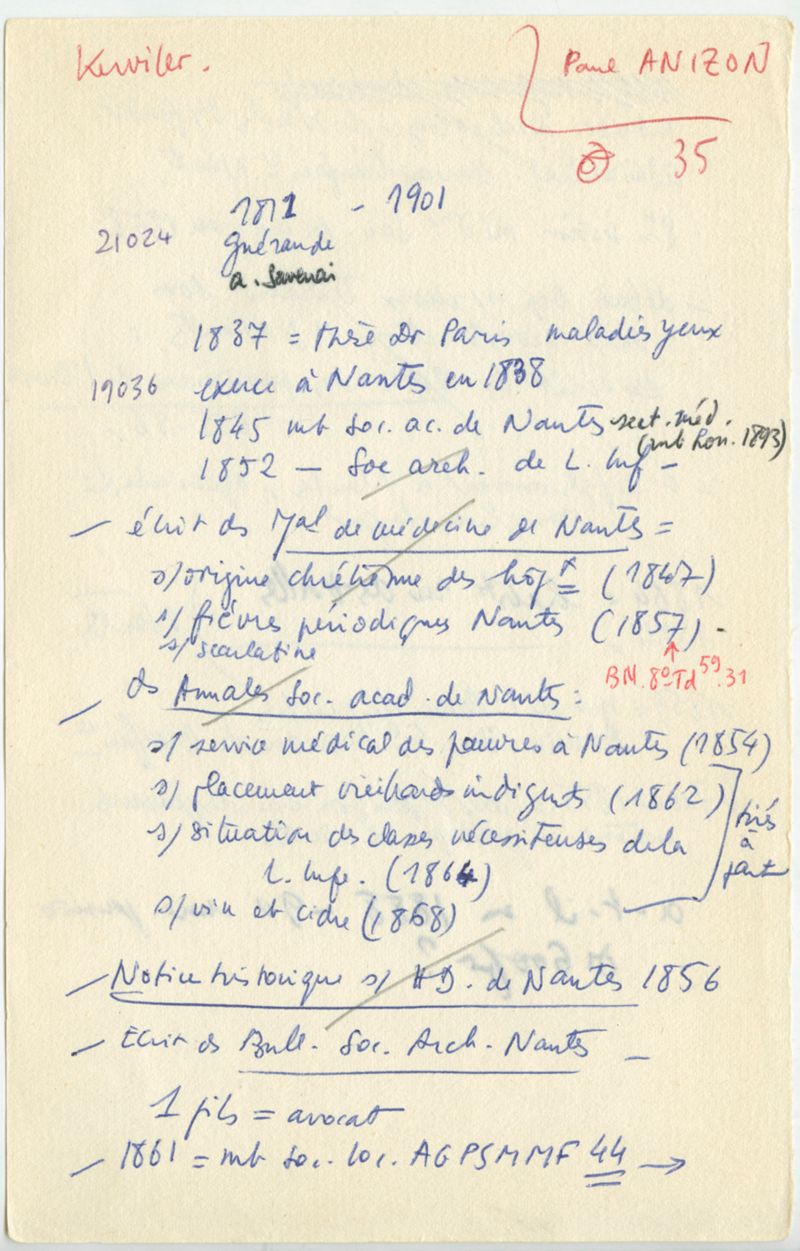 Kerviler.
Paul ANIZON
35
1811 - 1901
21024 Guérande
a. Savenai
1837 = thèse Dr Paris maladies yeux
19036 exerce à Nantes en 1838
1845 mb Soc. ac. de Nantes sect. méd.
(mb hon. 1893)
1852 — Soc arch. de L. Inf —
— écrit ds Jal de médecine de Nantes =
s/ origine chrétienne des hôpx (1847)
s/ fièvres périodiques Nantes (1857) -
s/ scarlatine
BN. 8° Td 59.31
— ds Annales Soc. acad. de Nantes :
s/ service médical des pauvres à Nantes (1854)
s/ placement vieillards indigents (1862)
s/ situation des classes nécessiteuses de la
L. Infe. (1864)
tirés
à
part
s/ vin et cidre (1868)
— Notice historique s/ HD. de Nantes 1856
— Ecrit ds Bull. Soc. Arch. Nantes —
1 fils = avocat
— 1861 = mb Soc. loc. AGPSMMF 44 →